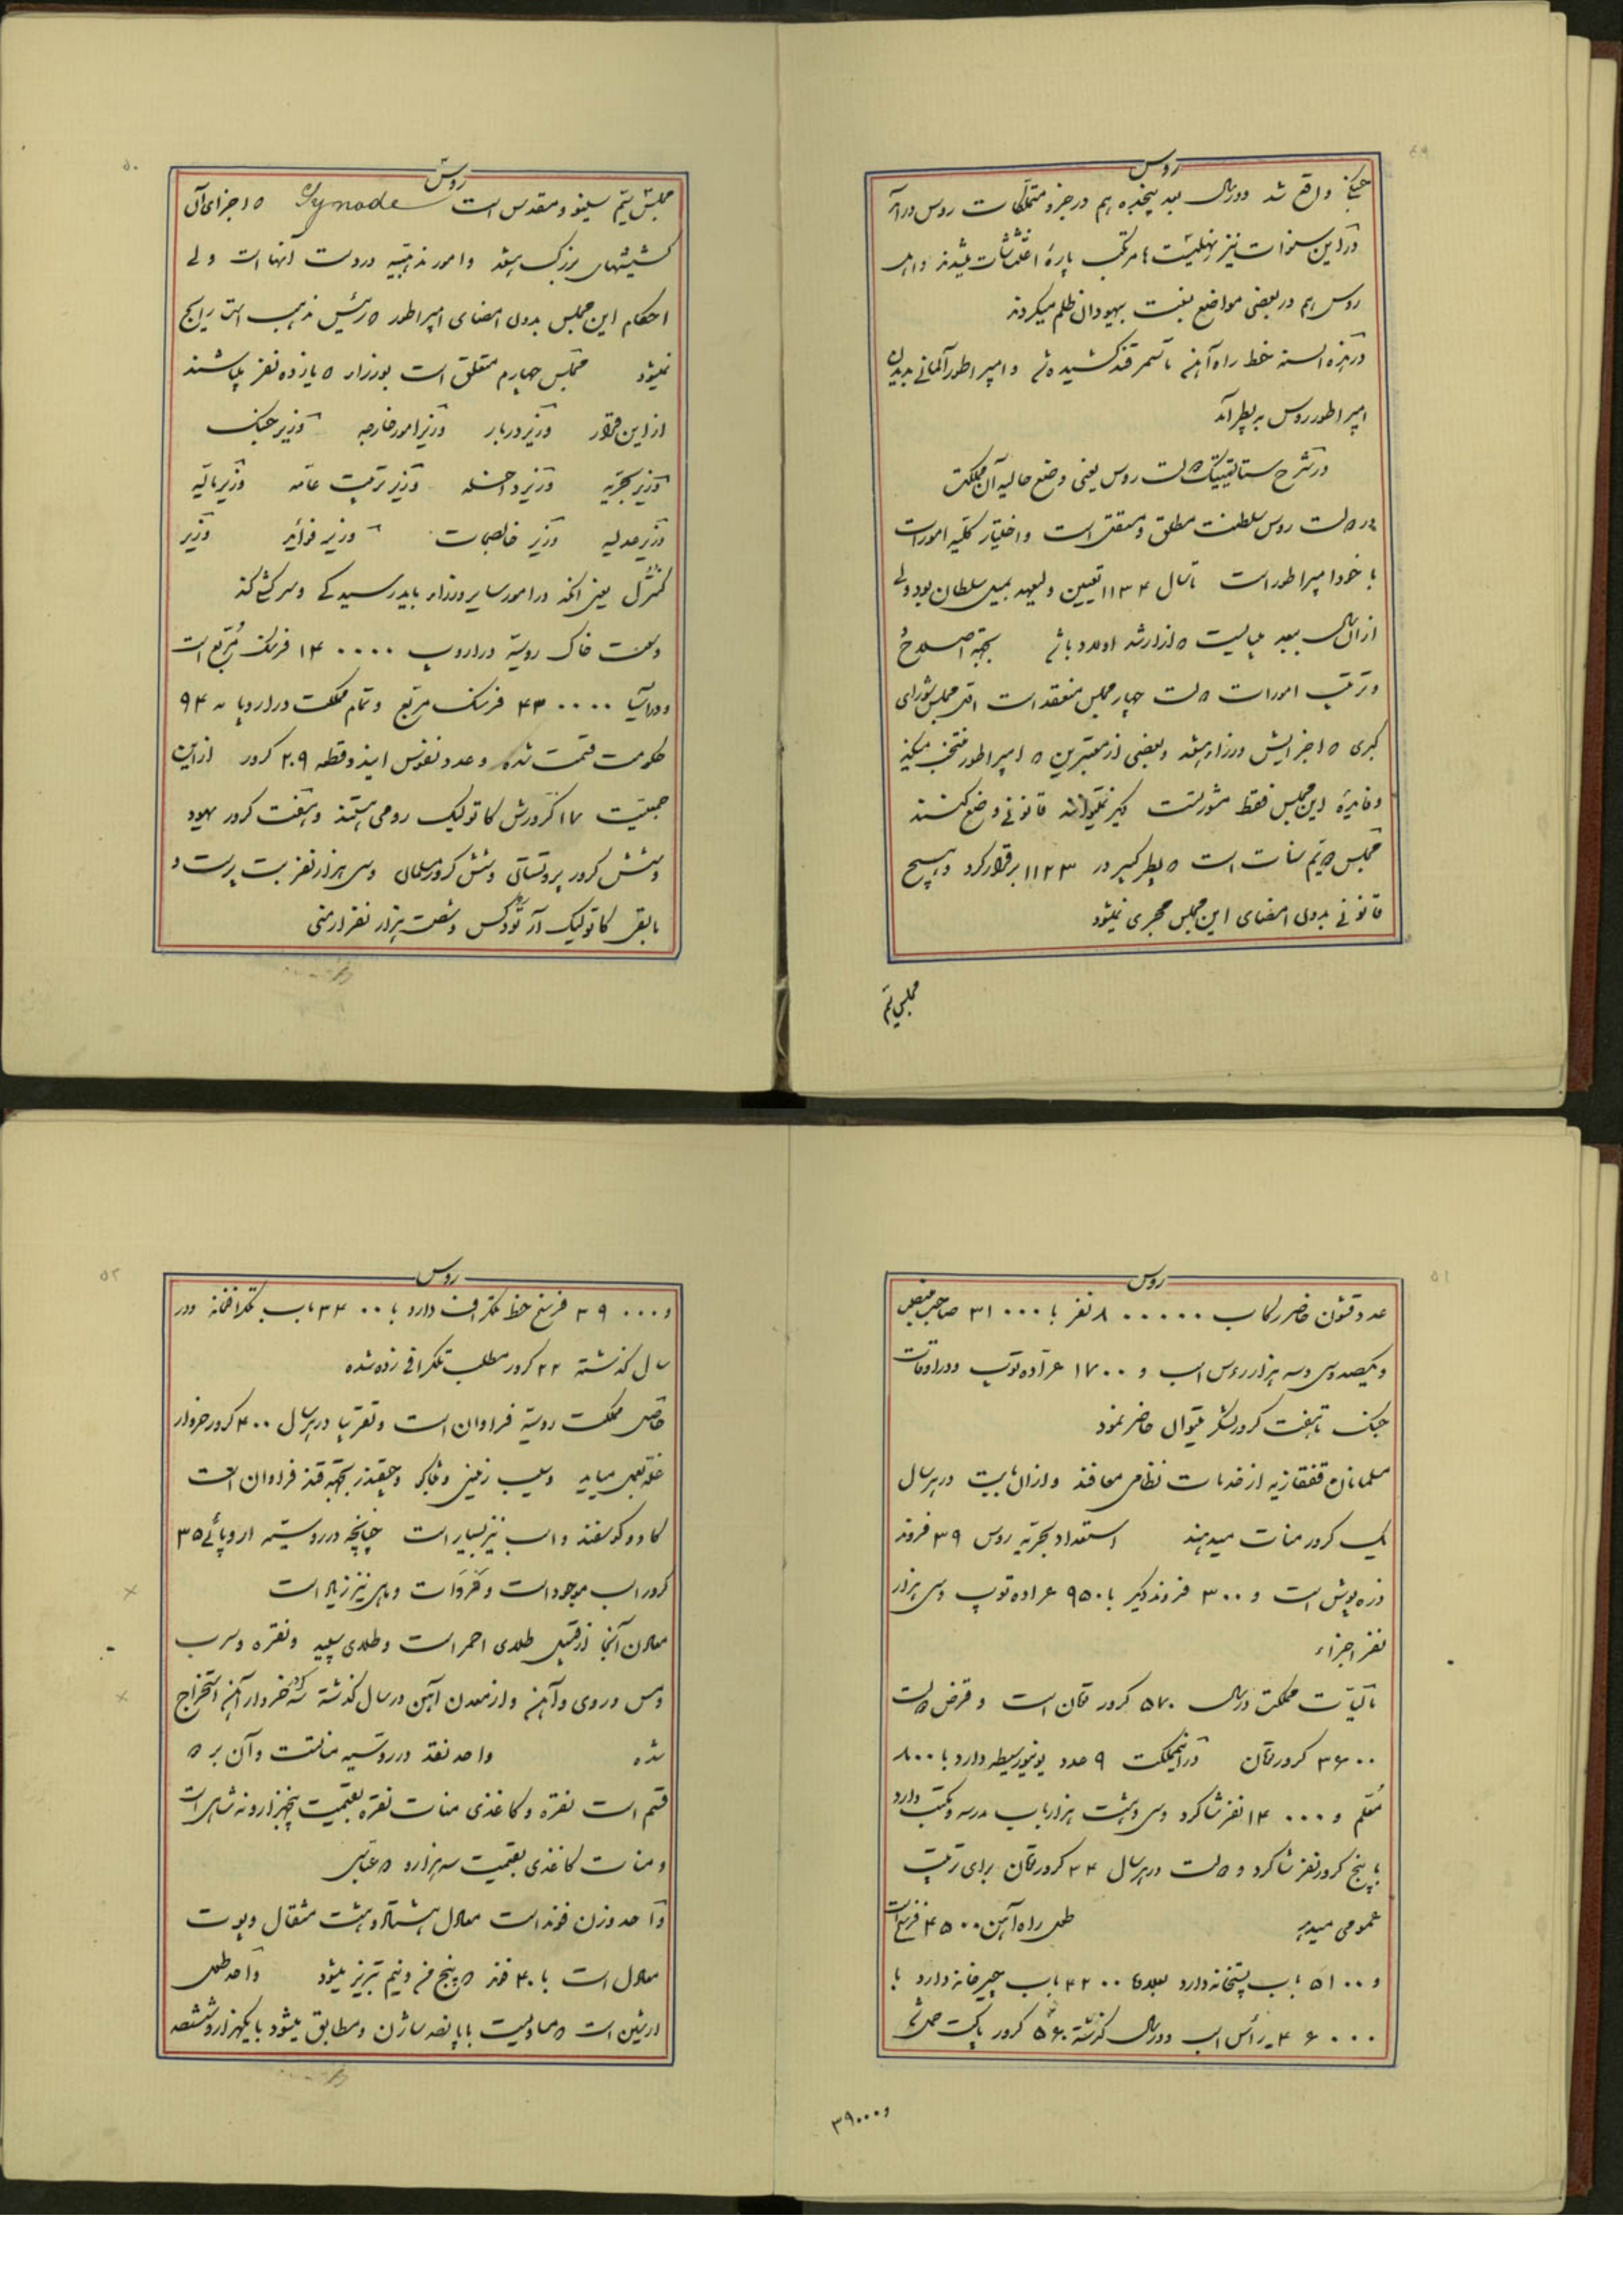 ۴۹
روس
جنگ واقع شد و در سال بعد پنجده هم در جزو متملکات روس درآمد
در این سنوات نیز نهلیست ها مرتکب پارهٔ اغتشاشات میشدند و اهل
روس هم در بعضی مواضع بنسبت بیهودان ظلم میکردند
در هذه السنه خط راه آهن تا سمرقند کشیده شد و امپراطور آلمانی بدیدن
امپراطور روس به پطر آمد
در شرح ستاتیستیک دولت روس یعنی وضع حالیه آن مملکت
دولت روس سلطنت مطلق و مستقل است و اختیار کلیه امورات
با خود امپراطور است تا سال ۱۱۳۴ تعیین ولیعهد بمیل سلطان بود ولی
از آن سال ببعد میبایست از ارشد اولاد باشد بجهة اصلاح
و ترتیب امورات دولت چهار مجلس منعقد است اول مجلس شورای
کبری که اجزایش وزراء هستند و بعضی از معتبرین که امپراطور منتخب میکند
و فایدهٔ این مجلس فقط مشورتست و نمیتوانند قانونی وضع کنند
مجلس دویم سنات است که پطر کبیر در ۱۱۲۳ برقرار کرد و هیچ
قانونی بدون امضای این مجلس مجری نمیشود
مجلس سیم
۵۰
روس
مجلس سیم سینود مقدس است Synode که اجزای آن
کشیشهای بزرگ هستند و امور مذهبیه در دست آنها است ولی
احکام این مجلس بدون امضای امپراطور که رئیس مذهب است رایج
نمیشود مجلس چهارم متعلق است بوزراء که یازده نفر میباشند
از این قرار وزیر دربار وزیر امور خارجه وزیر جنگ
وزیر بحریه وزیر داخله وزیر تربیت عامه وزیر مالیه
وزیر عدلیه وزیر خالصجات وزیر فوائد وزیر
کنترل یعنی آنکه در امور سایر وزراء باید رسیدگی و سرکشی کند
وسعت خاک روسیه در اروپ ۱۴۰۰۰۰ فرسنگ مربع است
و در آسیا ۴۳۰۰۰۰ فرسنگ مربع و تمام مملکت در اروپا به ۹۴
حکومت قسمت شده و عدد نفوس این دو قطعه ۲۰۹ کرور از این
جمعیت ۱۷ کرورش کاتولیک رومی هستند و هفت کرور یهود
و شش کرور پروتستانی و شش کرور مسلمان و سی هزار نفر بت پرست و
مابقی کاتولیک ارتودکس و شصت هزار نفر ارمنی
۵۱
روس
عدد قشون حاضر رکاب ۸۰۰۰۰۰ نفر با ۳۱۰۰۰ صاحبمنصب
و یکصد و سی و سه هزار رؤس اسب و ۱۷۰۰ عراده توپ و در اوقات
جنگ تا هفت کرور لشکر میتوان حاضر نمود
مسلمانان قفقازیه از خدمات نظامی معافند و از آن بابت در هر سال
یک کرور منات میدهند استعداد بحریه روس ۳۹ فروند
زره پوش است و ۳۰۰ فروند دیگر با ۹۵۰ عراده توپ و سی هزار
نفر اجزاء
مالیات مملکت در سال ۵۷۰ کرور تمان است و قرض دولت
۳۶۰۰ کرور تمان در اینمملکت ۹ عدد یونیورسیطه دارد با ۸۰۰
معلم و ۱۴۰۰۰ نفر شاگرد و سی و هشت هزار باب مدرسه و مکتب دارد
با پنج کرور نفر شاگرد و دولت در هر سال ۲۴ کرور تمان برای تربیت
عمومی میدهد طول راه آهن ۴۵۰۰ فرسخ است
و ۵۱۰۰ باب پستخانه دارد بعلاوه ۴۲۰۰ باب چپرخانه دارد با
۴۶۰۰۰ رأس اسب و در سال گذشته ۵۶۰ کرور پاکت حمل شده
و ۳۹۰۰۰
۵۲
روس
و ۳۹۰۰۰ فرسخ خط تلگراف دارد با ۳۴۰۰ باب تلگرافخانه و در
سال گذشته ۲۲ کرور مطلب تلگرافی زده شده
حاصل مملکت روسیه فراوان است و تقریبا در هر سال ۴۰۰ کرور خروار
غله بعمل میآید و سیب زمینی و تنباکو و چقندر بجهة قند فراوان است
گاو و گوسفند و اسب نیز بسیار است چنانچه در روسیه اروپائی ۳۵
کرور اسب موجود است و فروات و ماهی نیز زیاد است
معادن آنجا از قبیل طلای احمر است و طلای سپید و نقره و سرب
و مس و روی و آهن و از معدن آهن در سال گذشته سه کرور خروار آهن استخراج
شده واحد نقد در روسیه مناتست و آن بر دو
قسم است نقره و کاغذی منات نقره بقیمت پنجهزار و نه شاهی است
و منات کاغذی بقیمت سه هزار و دو عباسی
واحد وزن فوند است معادل هشتاد و هشت مثقال و پوت
معادل است با ۴۰ فوند که پنج من و نیم تبریز میشود واحد طول
ارشین است که مساویست با پانصد ساژن و مطابق میشود با یکهزار و ششصد